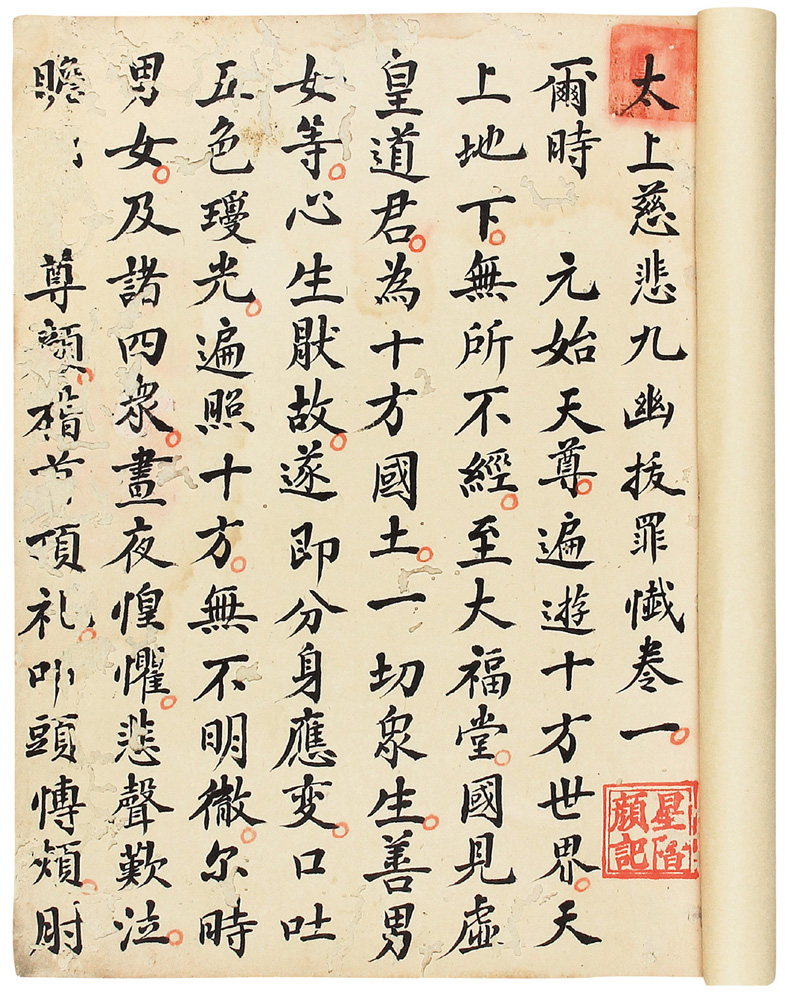 太上慈悲九幽拔罪懺卷一
爾時 元始天尊遍遊十方世界天
上地下無所不經至大福堂國見虛
皇道君為十方國土一切眾生善男
女等心生猒故遂即分身應变口吐
五色瓊光遍照十方無不明徹尔時
男女及諸四眾晝夜惶懼悲聲歎泣
瞻 尊顏稽首頂礼叩頭慱頰肘
星
顏記